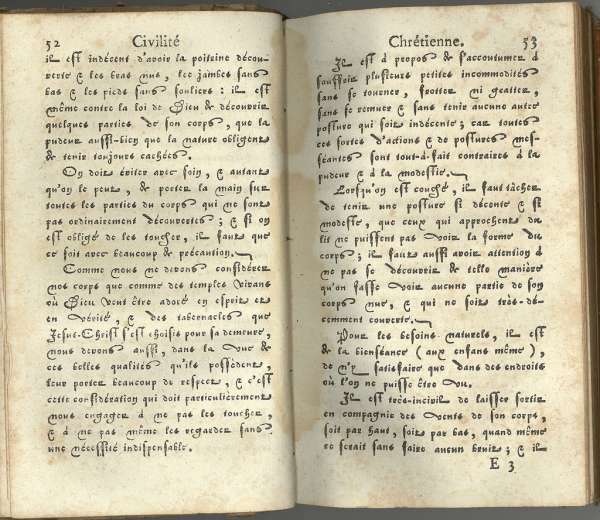 52 Civilité
il est indécent d'avoir la poitrine décou-
verte & les bras nus, les jambes sans
bas & les pieds sans souliers : il est
même contre la loi de Dieu de découvrir
quelques parties de son corps, que la
pudeur aussi-bien que la nature obligent
de tenir toujours cachées.
On doit éviter avec soin, & autant
qu'on le peut, de porter la main sur
toutes les parties du corps qui ne sont
pas ordinairement découvertes ; & si on
est obligé de les toucher, il faut que
ce soit avec beaucoup de précaution.
Comme nous ne devons considérer
nos corps que comme des temples vivans
où Dieu veut être adoré en esprit et
en vérité, & des tabernacles que
Jesus-Christ s'est choisis pour sa demeure,
nous devons aussi, dans la vue de
ces belles qualités qu'ils possèdent,
leur porter beaucoup de respect, & c'est
cette considération qui doit particulièrement
nous engager à ne pas les toucher,
& à ne pas même les regarder sans
une nécessité indispensable.
Chrétienne. 53
Il est à propos de s'accoutumer à
souffrir plusieurs petites incommodités
sans se tourner, frotter ni gratter,
sans se remuer & sans tenir aucune autre
posture qui soit indécente ; car toutes
ces sortes d'actions & de postures mes-
séantes sont tout-à-fait contraires à la
pudeur & à la modestie.
Lorsqu'on est couché, il faut tâcher
de tenir une posture si décente & si
modeste, que ceux qui approchent du
lit ne puissent pas voir la forme du
corps ; il faut aussi avoir attention à
ne pas se découvrir de telle manière
qu'on fasse voir aucune partie de son
corps nue, & qui ne soit très-dé-
cemment couverte.
Pour les besoins naturels, il est
de la bienséance (aux enfans même),
de n'y satisfaire que dans des endroits
où l'on ne puisse être vu.
Il est très-incivil de laisser sortir
en compagnie des vents de son corps,
soit par haut, soit par bas, quand même
ce serait sans faire aucun bruit ; & il
E 3